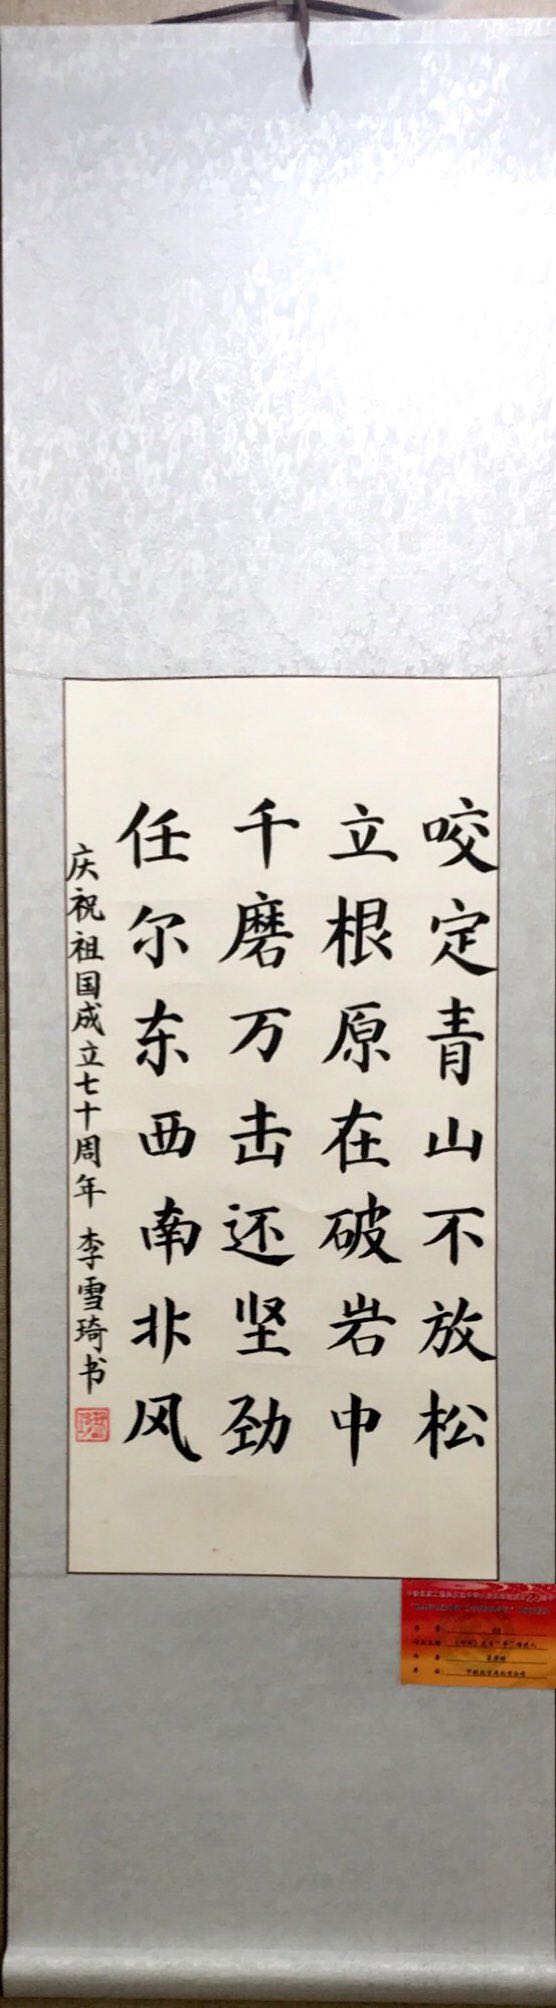 咬定青山不放松
立根原在破岩中
千磨万击还坚劲
任尔东西南北风
庆祝祖国成立七十周年 李雪琦书